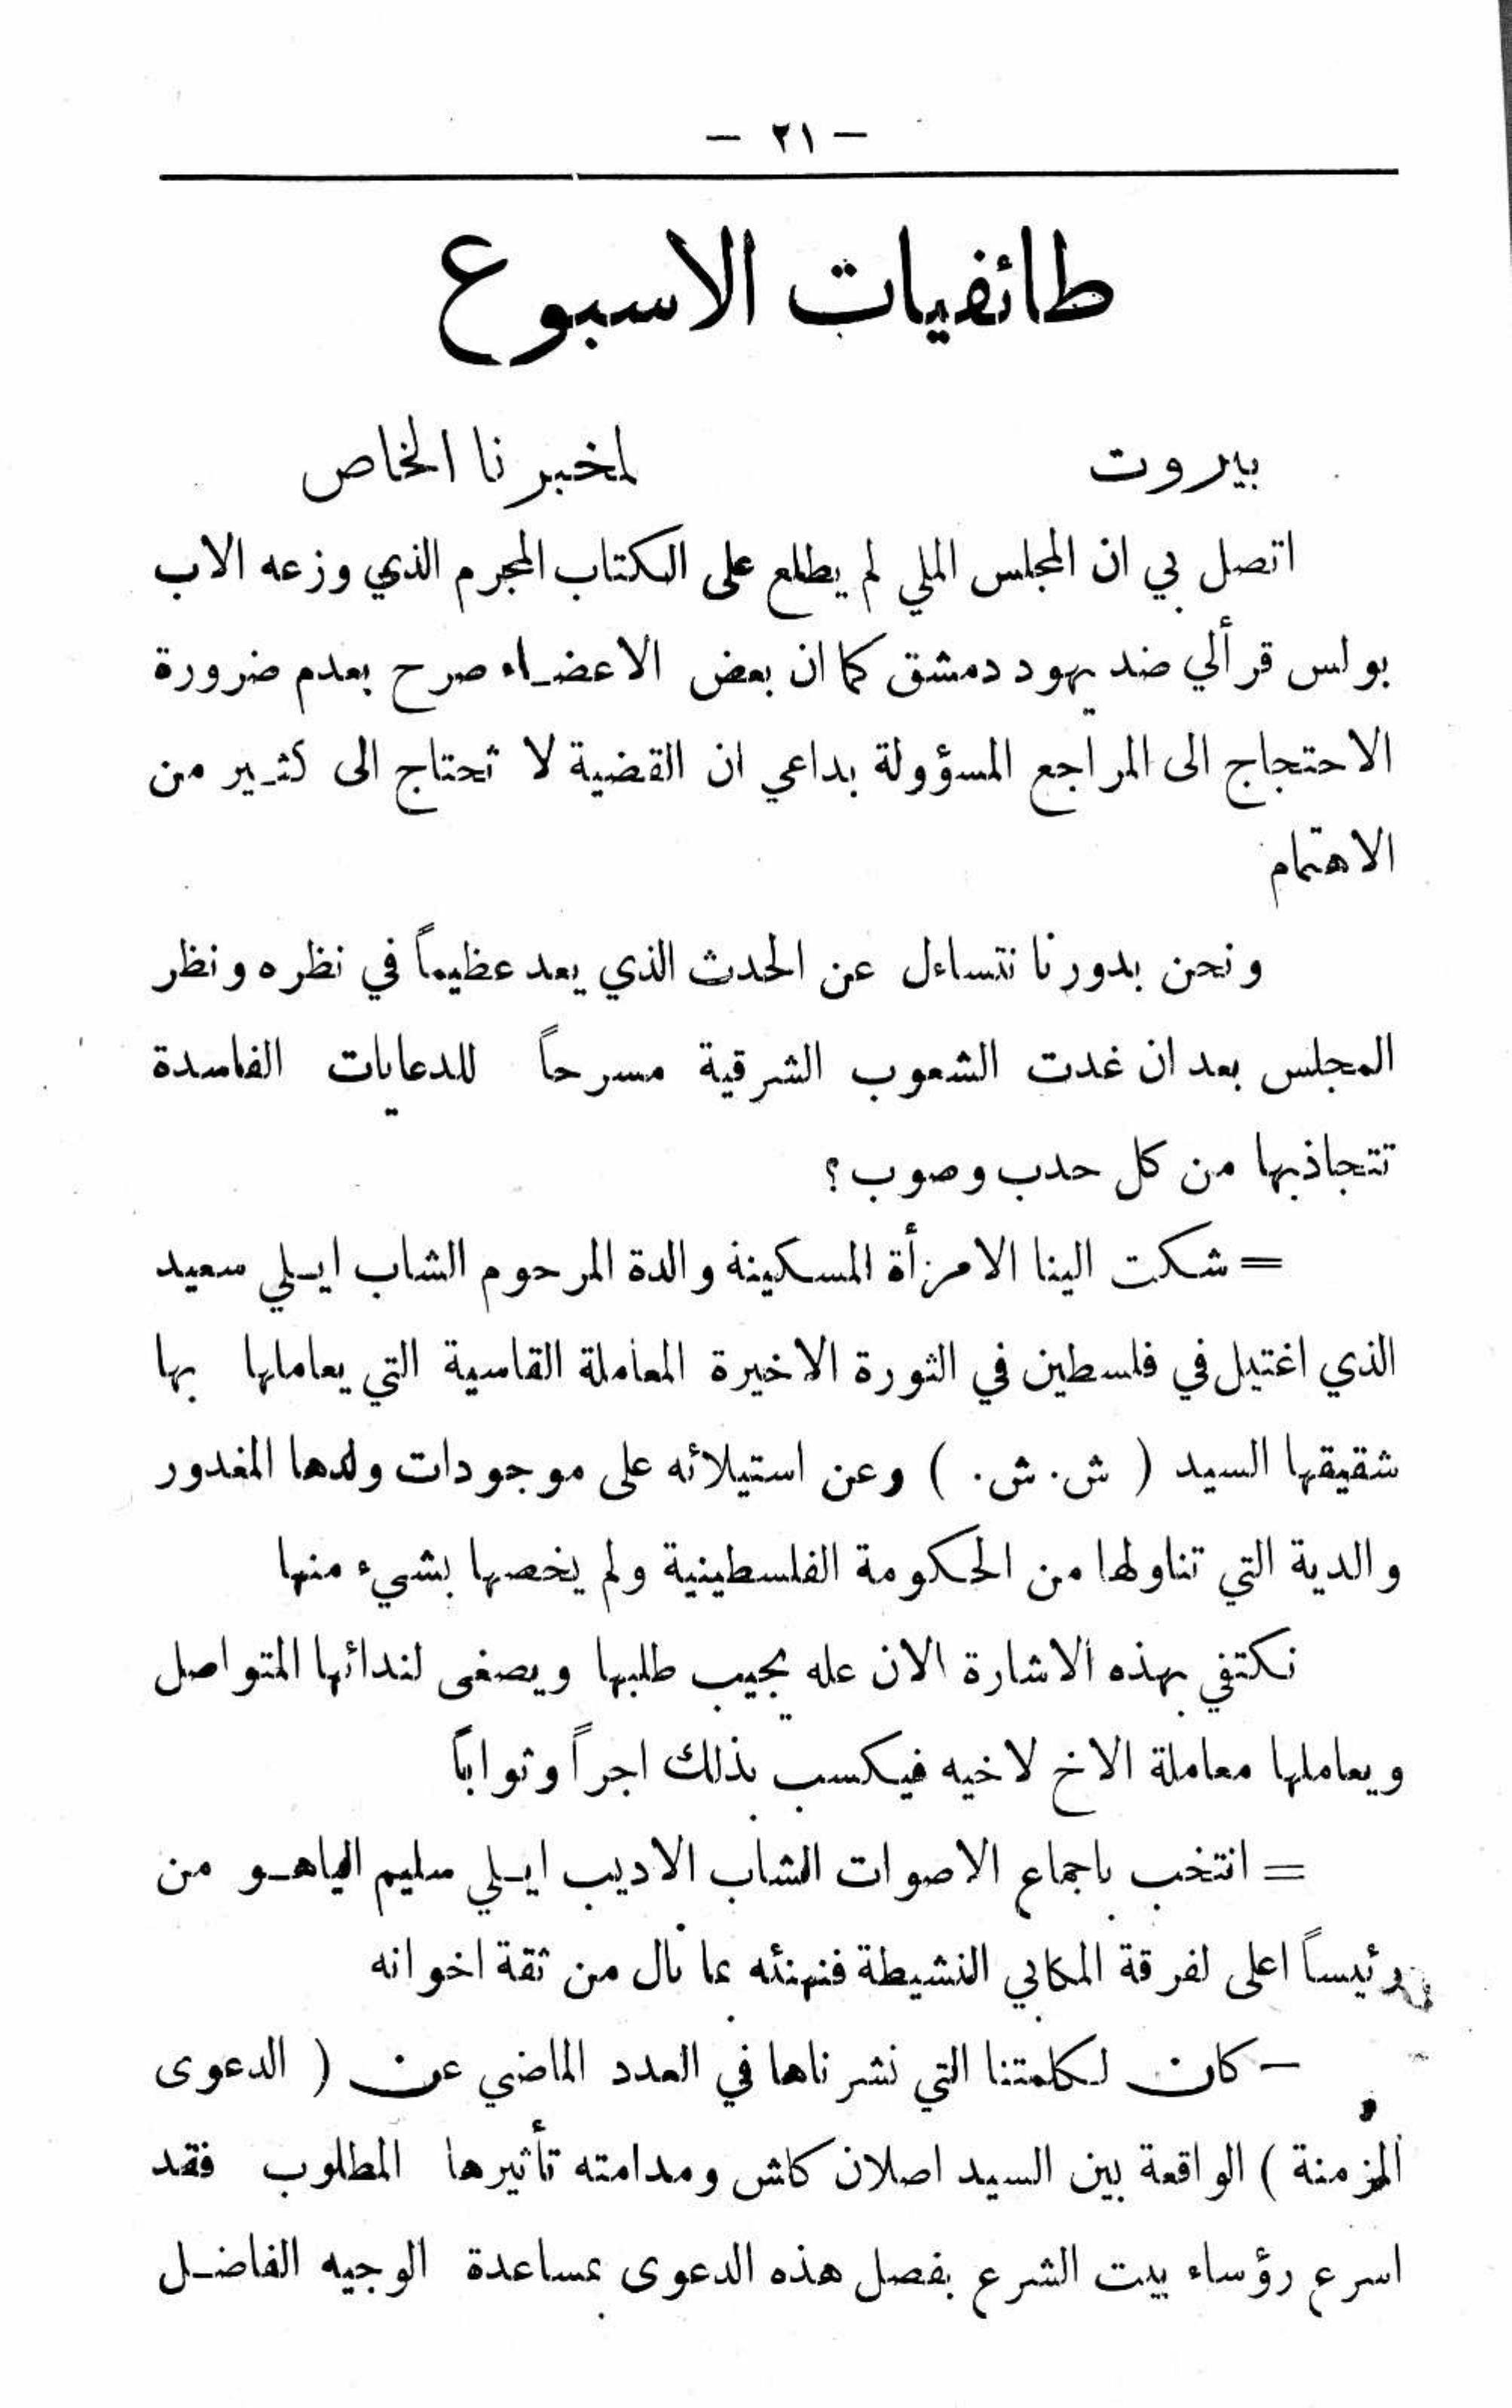 — ٢١ —
طائفيات الاسبوع
بيروت لمخبرنا الخاص
اتصل بي ان المجلس الملي لم يطلع على الكتاب المجرم الذي وزعه الاب
بولس قرألي ضد يهود دمشق كما ان بعض الاعضاء صرح بعدم ضرورة
الاحتجاج الى المراجع المسؤولة بداعي ان القضية لا تحتاج الى كثير من
الاهتمام
ونحن بدورنا نتساءل عن الحدث الذي يعد عظيماً في نظره ونظر
المجلس بعد ان غدت الشعوب الشرقية مسرحاً للدعايات الفاسدة
تتجاذبها من كل حدب وصوب ؟
= شكت الينا الامرأة المسكينة والدة المرحوم الشاب ايلي سعيد
الذي اغتيل في فلسطين في الثورة الاخيرة المعاملة القاسية التي يعاملها بها
شقيقها السيد ( ش. ش. ) وعن استيلائه على موجودات ولدها المغدور
والدية التي تناولها من الحكومة الفلسطينية ولم يخصها بشيء منها
نكتفي بهذه الاشارة الان عله يجيب طلبها ويصغى لندائها المتواصل
ويعاملها معاملة الاخ لاخيه فيكسب بذلك اجراً وثواباً
= انتخب باجماع الاصوات الشاب الاديب ايلي سليم الياهو من
رئيساً اعلى لفرقة المكابي النشيطة فنهنئه بما نال من ثقة اخوانه
— كان لكلمتنا التي نشرناها في العدد الماضي عن ( الدعوى
المزمنة ) الواقعة بين السيد اصلان كاش ومدامته تأثيرها المطلوب فقد
اسرع رؤساء بيت الشرع بفصل هذه الدعوى بمساعدة الوجيه الفاضل